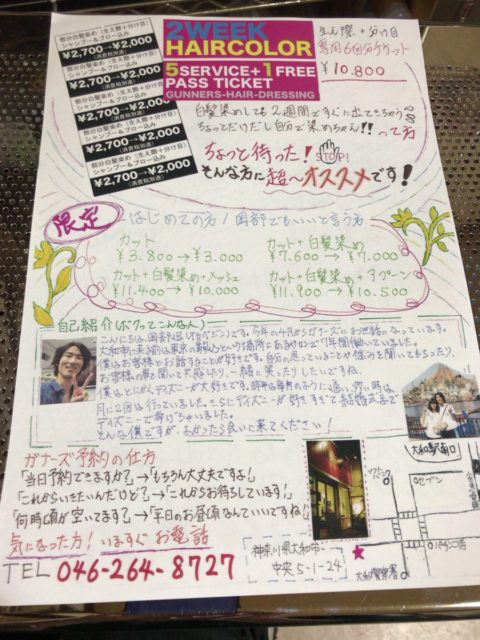 部分白髪染め(生え際+分け目)
シャンプー&ブロー込み
¥2,700→¥2,000
(消費税別途)
部分白髪染め(生え際+分け目)
シャンプー&ブロー込み
¥2,700→¥2,000
(消費税別途)
部分白髪染め(生え際+分け目)
シャンプー&ブロー込み
¥2,700→¥2,000
(消費税別途)
部分白髪染め(生え際+分け目)
シャンプー&ブロー込み
¥2,700→¥2,000
(消費税別途)
部分白髪染め(生え際+分け目)
シャンプー&ブロー込み
¥2,700→¥2,000
(消費税別途)
2WEEK
HAIRCOLOR
5SERVICE+1FREE
PASS TICKET
GUNNERS-HAIR-DRESSING
生え際+分け目
専用6回分チケット
¥10.800
白髪染めしても2週間ですぐに出てきちゃう
ちょっとだけだし自分で染めちゃえ!!って方
ちょっと待った!STOP!
そんな方に超〜オススメです!
限定
はじめての方/岡部でもいいと言う方
カット
¥3.800→¥3.000
カット+白髪染め
¥7.600→¥7.000
カット+白髪染め+メッシュ
¥11.400→¥10.000
カット+白髪染め+アプーン
¥11.900→¥10.500
自己紹介(ボクってこんな人)
こんにちは岡部
です。今年の4月からガナーズにお世話になっています。
大和市に来る前は東京の
という場所にあるサロンで7年間働いていました。
僕はお客様とお話することが好きです。自分の思っていることや悩みを聞いてもらったり、
お客様の事を聞いて共感したり、一緒に笑ったりしたいですね。
僕はとにかくディズニーが大好きです。時期は毎月のように通い、多い時は、
月に2回は行っていました。さらにディズニーが好きすぎて結婚式まで
ディズニーで挙げちゃいました。
そんな僕ですが、よかったら会いに来てください!
ガナーズ予約の仕方
「当日予約できますか?」→「もちろん大丈夫ですよ!」
「これからいきたいんだけど?」→「これからお待ちしています!」
「何時頃が空いてます?」→「平日のお昼頃なんていいですね!」
気になった方!いますぐお電話
TEL 046-264-8727
神奈川県大和市
中央5-1-24
大和駅南口
セブン
大和警察署